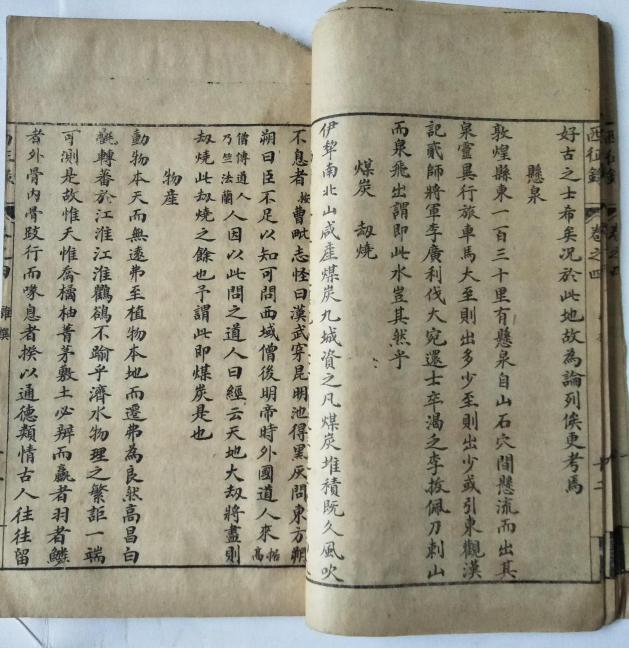 西征錄 卷之四
好古之士希矣況於此地故為論列俟更考焉
懸泉
敦煌縣東一百三十里有懸泉自山石穴間懸流而出其
泉靈異行旅車馬大至則出多少至則出少或引東觀漢
記貳師將軍李廣利伐大宛還士卒渴乏李拔佩刀刺山
而泉飛出謂即此水豈其然乎
煤炭 刼燒
伊犂南北山咸產煤炭九城資之凡煤炭堆積既久風吹
不息者按曹毗志怪曰漢武穿昆明池得黑灰問東方朔
朔曰臣不足以知可問西域僧後明帝時外國道人來
僧傳道人
乃竺法蘭
人因以此問之道人曰經云天地大刼將盡則
刼燒此刼燒之餘也予謂此即煤炭是也
物產
動物本天而無遠弗至植物本地而還弗為良然高昌白
轉蕃於江淮江淮鸛鵒不踰乎濟水物理之繁詎一端
可測是故惟天惟喬橘柚菁茅敷土必辨而羸者羽者鱗
者外骨內骨跂行而喙息者揆以通德類情古人往往留